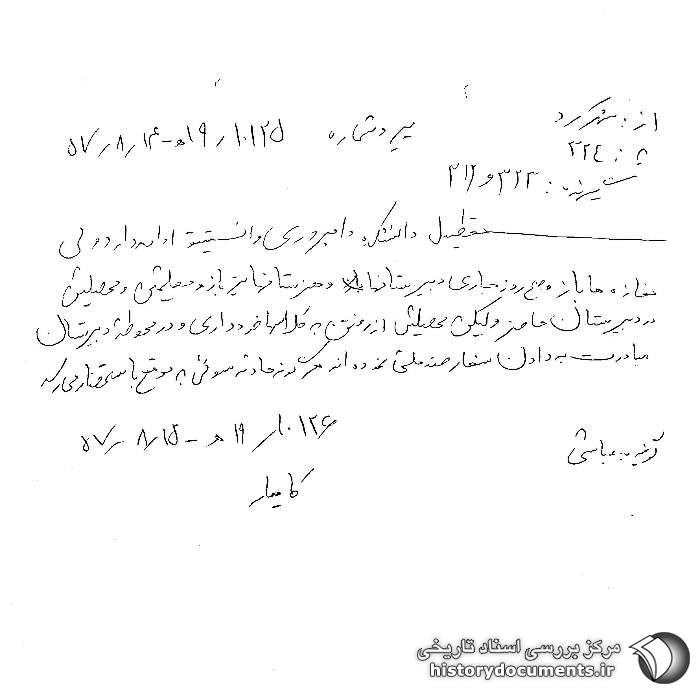 از: شهرکرد
به: ۳۲۴ پیرو شماره ۱۰۱۲۵/ ۱۹ ه‍ - ۱۴/ ۸/ ۵۷
گیرنده: ۳۲۲ و ۳۱۲
تعطیل دانشکده دامپروری و انستیتو ادامه دارد ولی
مغازه ها باز و صبح روز جاری دبیرستانها و هنرستانها نیز باز و معلمین و محصلین
در دبیرستان حاضر ولیکن محصلین از رفتن به کلاسها خودداری و در محوطه دبیرستان
مبادرت به دادن شعار ضد ملی نموده اند هرگونه حادثه سوئی به موقع باستحضار می رسد
۱۰۱۲۶/ ۱۹ ه‍ - ۱۵/ ۸/ ۵۷
گوینده: عباسی
کامکار
مرکز بررسی اسناد تاریخی
historydocuments.ir